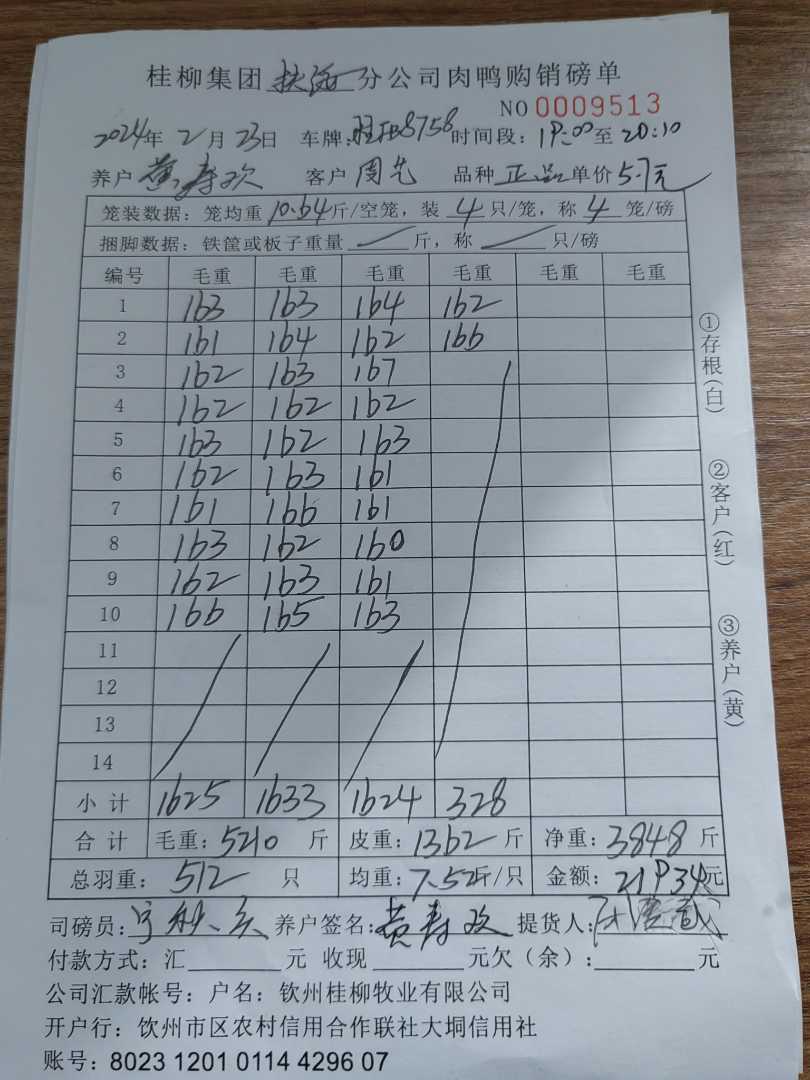 桂柳集团 分公司肉鸭购销磅单
NO 0009513
2024年 2月 23日 车牌: 8758 时间段: 19:00至 20:10
养户 黄寿欢 客户 周先 品种 正品 单价 5.7元
笼装数据：笼均重 10.64斤/空笼，装 4 只/笼，称 4 笼/磅
捆脚数据：铁筐或板子重量 斤，称 只/磅
编号 毛重 毛重 毛重 毛重 毛重 毛重
1 163 163 164 162
2 161 164 162 166
3 162 163 167
4 162 162 162
5 163 162 163
6 162 163 161
7 161 166 161
8 163 162 160
9 162 163 161
10 166 165 163
11
12
13
14
小计 1625 1633 1624 328
合计 毛重: 5210 斤 皮重: 1362 斤 净重: 3848 斤
总羽重: 512 只 均重: 7.52斤/只 金额: 21934元
司磅员: 养户签名: 提货人:
付款方式：汇 元 收现 元欠（余）: 元
公司汇款帐号：户名：钦州桂柳牧业有限公司
开户行：饮州市区农村信用合作联社大垌信用社
账号：8023 1201 0114 4296 07
①存根(白) ②客户(红) ③养户(黄)